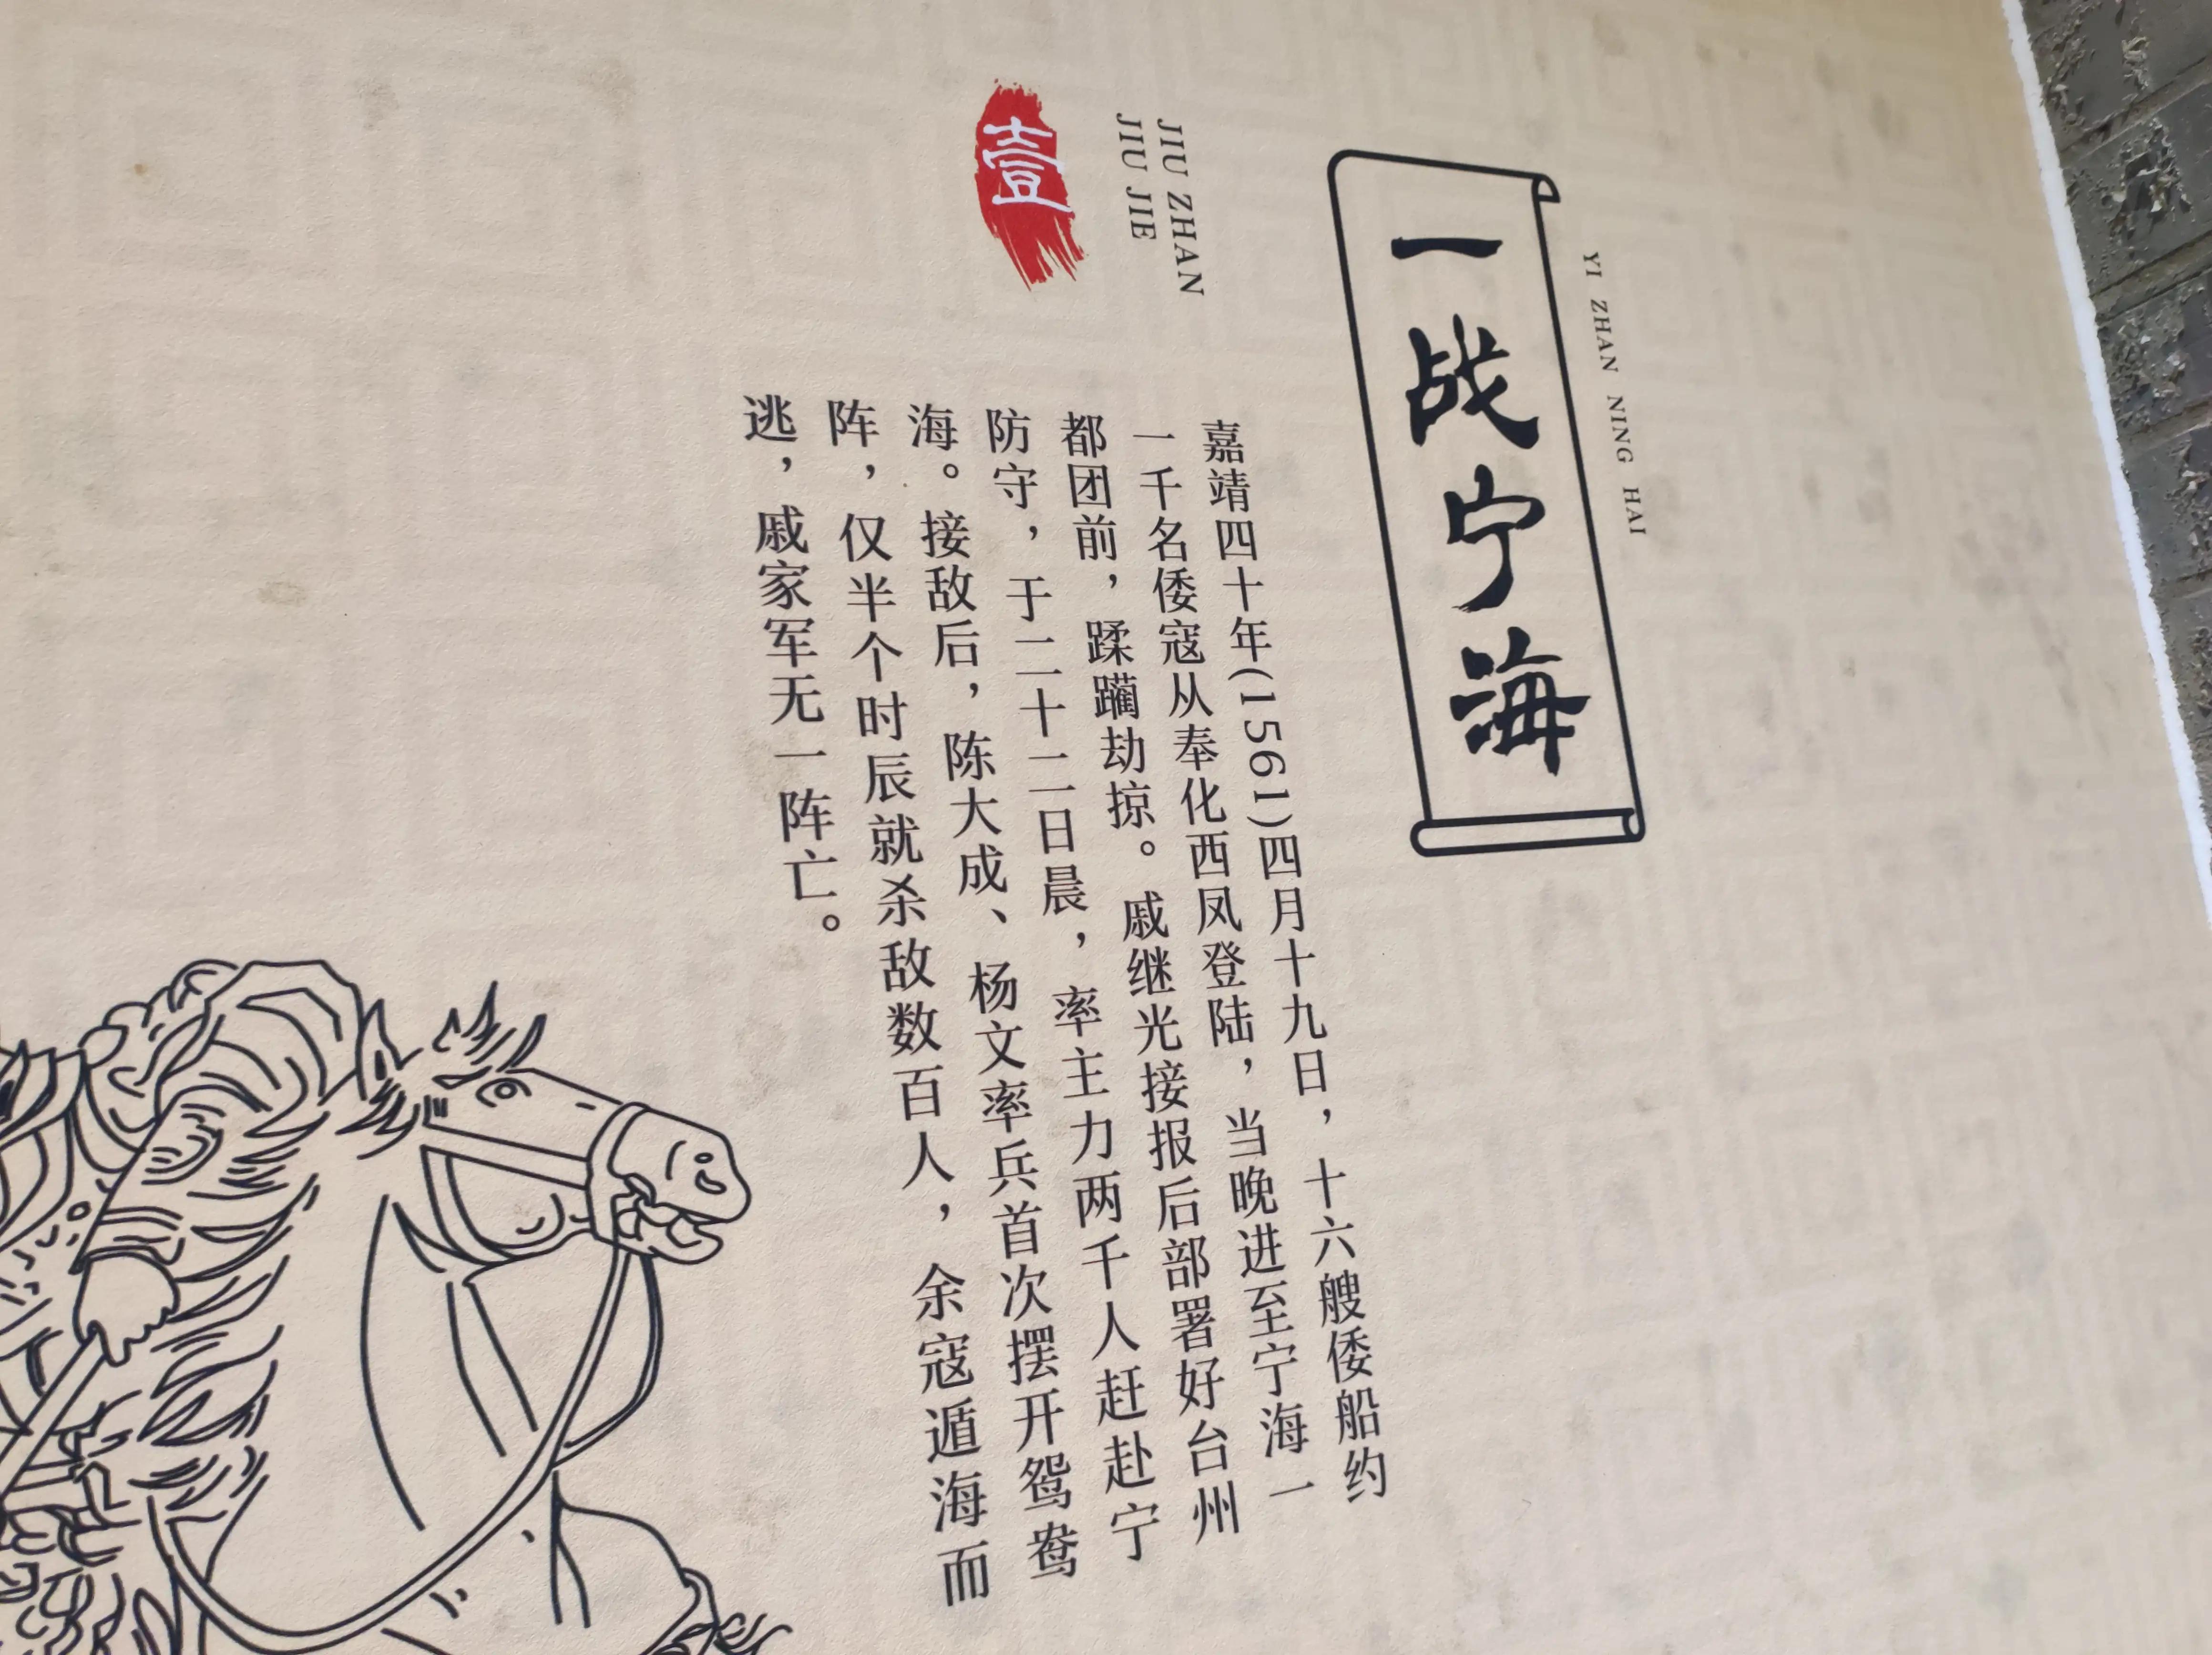 YI ZHAN NING HAI
一战宁海
嘉靖四十年(1561)四月十九日，十六艘倭船约
一千名倭寇从奉化西凤登陆，当晚进至宁海一
都团前，蹂躏劫掠。戚继光接报后部署好台州
防守，于二十二日晨，率主力两千人赶赴宁
海。接敌后，陈大成、杨文率兵首次摆开鸳鸯
阵，仅半个时辰就杀敌数百人，余寇遁海而
逃，戚家军无一阵亡。
JIU ZHAN
JIU JIE
壹